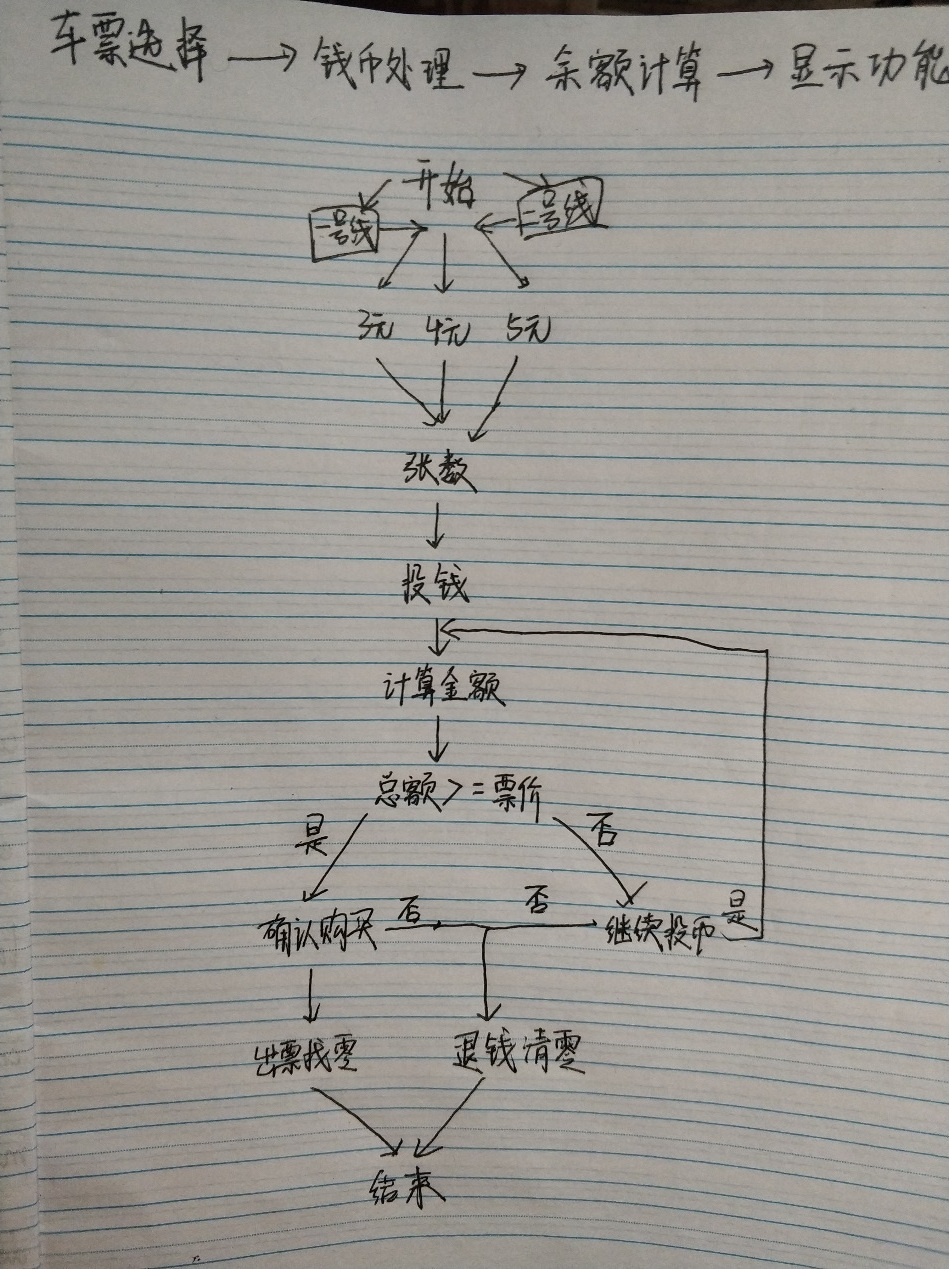 车票选择 → 钱币处理 → 余额计算 → 显示功能
开始
一号线 二号线
3元 4元 5元
张数
投钱
计算金额
总额>=票价
是 否
确认购买 否 否 继续投币 是
出票找零 退钱清零
结束